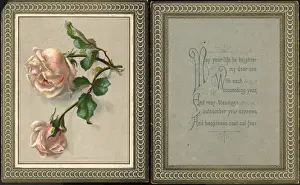 May your life be brighter
my dear one
With each
succeeding year,
And may blessings
outnumber your sorrows
And happiness cast out fear